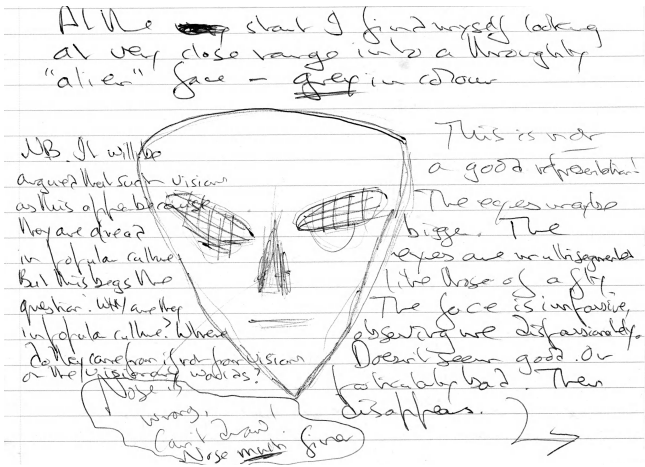 At the start I find myself looking
at very close range into a throughly
"alien" face – grey in colour
NB. It will be
argued that such visions
as this appear because
they are already
in popular culture.
But this begs the
question: Why are they
in popular culture? Where
do they come from if not from visions
or the visionary worlds?
This is not
a good representation!
The eyes maybe
bigger. The
eyes are multisegmented
like those of a fly
The face is impassive,
observing me dispassionately.
Doesn't seem good. Or
particularly bad. Then
disappears.
Nose is
wrong.
Can't draw!
Nose much finer